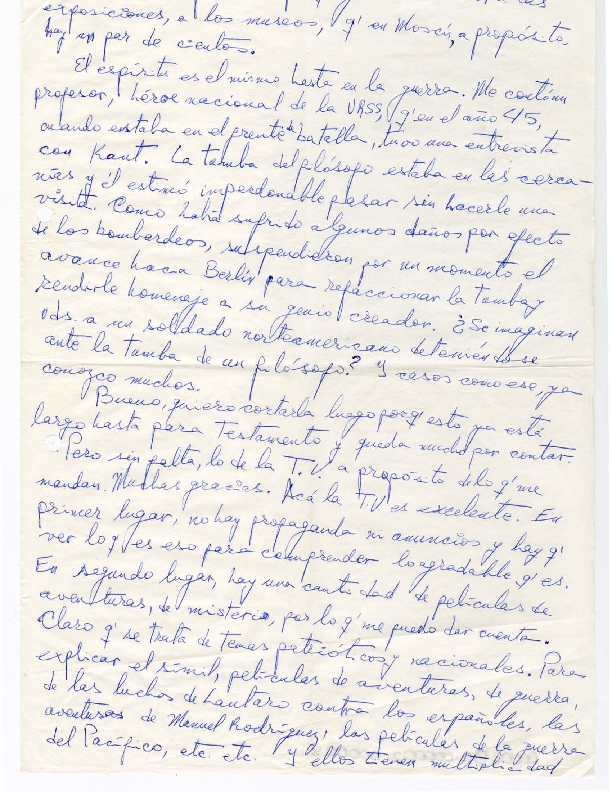 exposiciones, a los museos, q' en Moscú, a propósito,
hay un par de cientos.
El espíritu es el mismo hasta en la guerra. Me contó un
profesor, héroe nacional de la URSS, q' en el año 45,
cuando estaba en el frente de batalla, tuvo una entrevista
con Kant. La tumba del filósofo estaba en las cerca-
nías y él estimó imperdonable pasar sin hacerle una
visita. Como había sufrido algunos daños por efecto
de los bombardeos, suspendieron por un momento el
avance hacia Berlín para refaccionar la tumba y
rendirle homenaje a su genio creador. ¿Se imaginan
Uds. a un soldado norteamericano deteniéndose
ante la tumba de un filósofo? Y casos como ese, ya
conozco muchos.
Bueno, quiero cortarla luego porq' esto ya está
largo hasta para Testamento y queda mucho por contar.
Pero sin falta, lo de la T.V. a propósito de lo q' me
mandan. Muchas gracias. Acá la T.V. es excelente. En
primer lugar, no hay propaganda ni anuncios y hay q'
ver lo q' es eso para comprender lo agradable q' es.
En segundo lugar, hay una cantidad de películas de
aventuras, de misterio, por lo q' me puedo dar cuenta.
Claro q' se trata de temas patrióticos y nacionales. Para
explicar el símil, películas de aventuras, de guerra,
de las luchas de Lautaro contra los españoles, las
aventuras de Manuel Rodríguez, las películas de la guerra
del Pacífico, etc. etc. Y ellos tienen multiplicidad